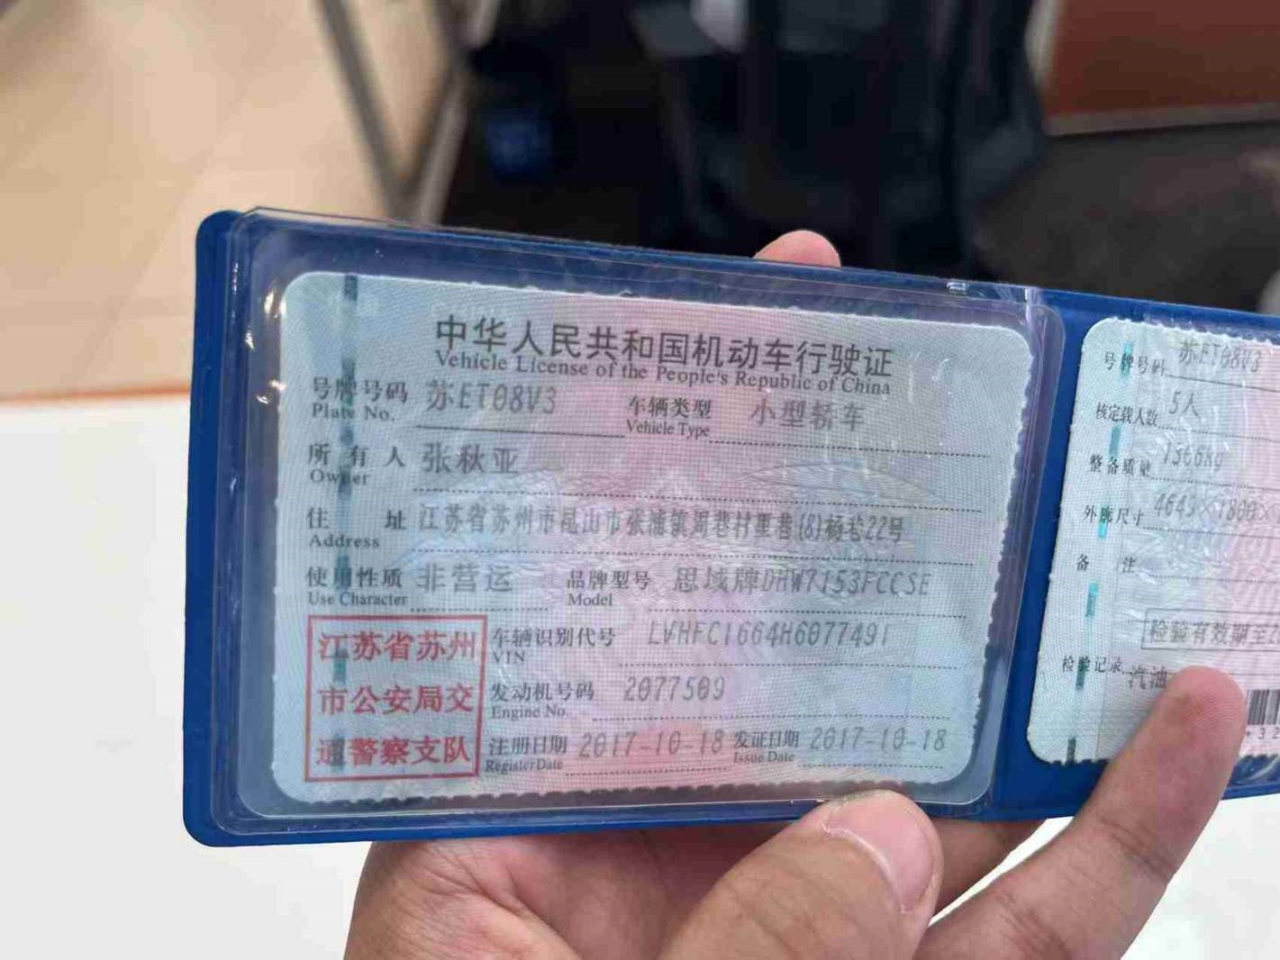 中华人民共和国机动车行驶证
Vehicle License of the People's Republic of China
号牌号码 苏ET08V3 车辆类型 小型轿车
Plate No. Vehicle Type
所有人 张秋亚
Owner
住址 江苏省苏州市昆山市张浦镇周巷村里巷(8)杨宅22号
Address
使用性质 非营运 品牌型号 思域牌DHW7153FCCSE
Use Character Model
江苏省苏州
市公安局交
通警察支队
车辆识别代号 LVHFC1664H6077491
VIN
发动机号码 2077509
Engine No.
注册日期 2017-10-18 发证日期 2017-10-18
Register Date Issue Date
号牌号码 苏ET08V3
核定载人数 5人
整备质量
外廓尺寸 4645×1800×
备注
检验有效期至
检验记录
汽油